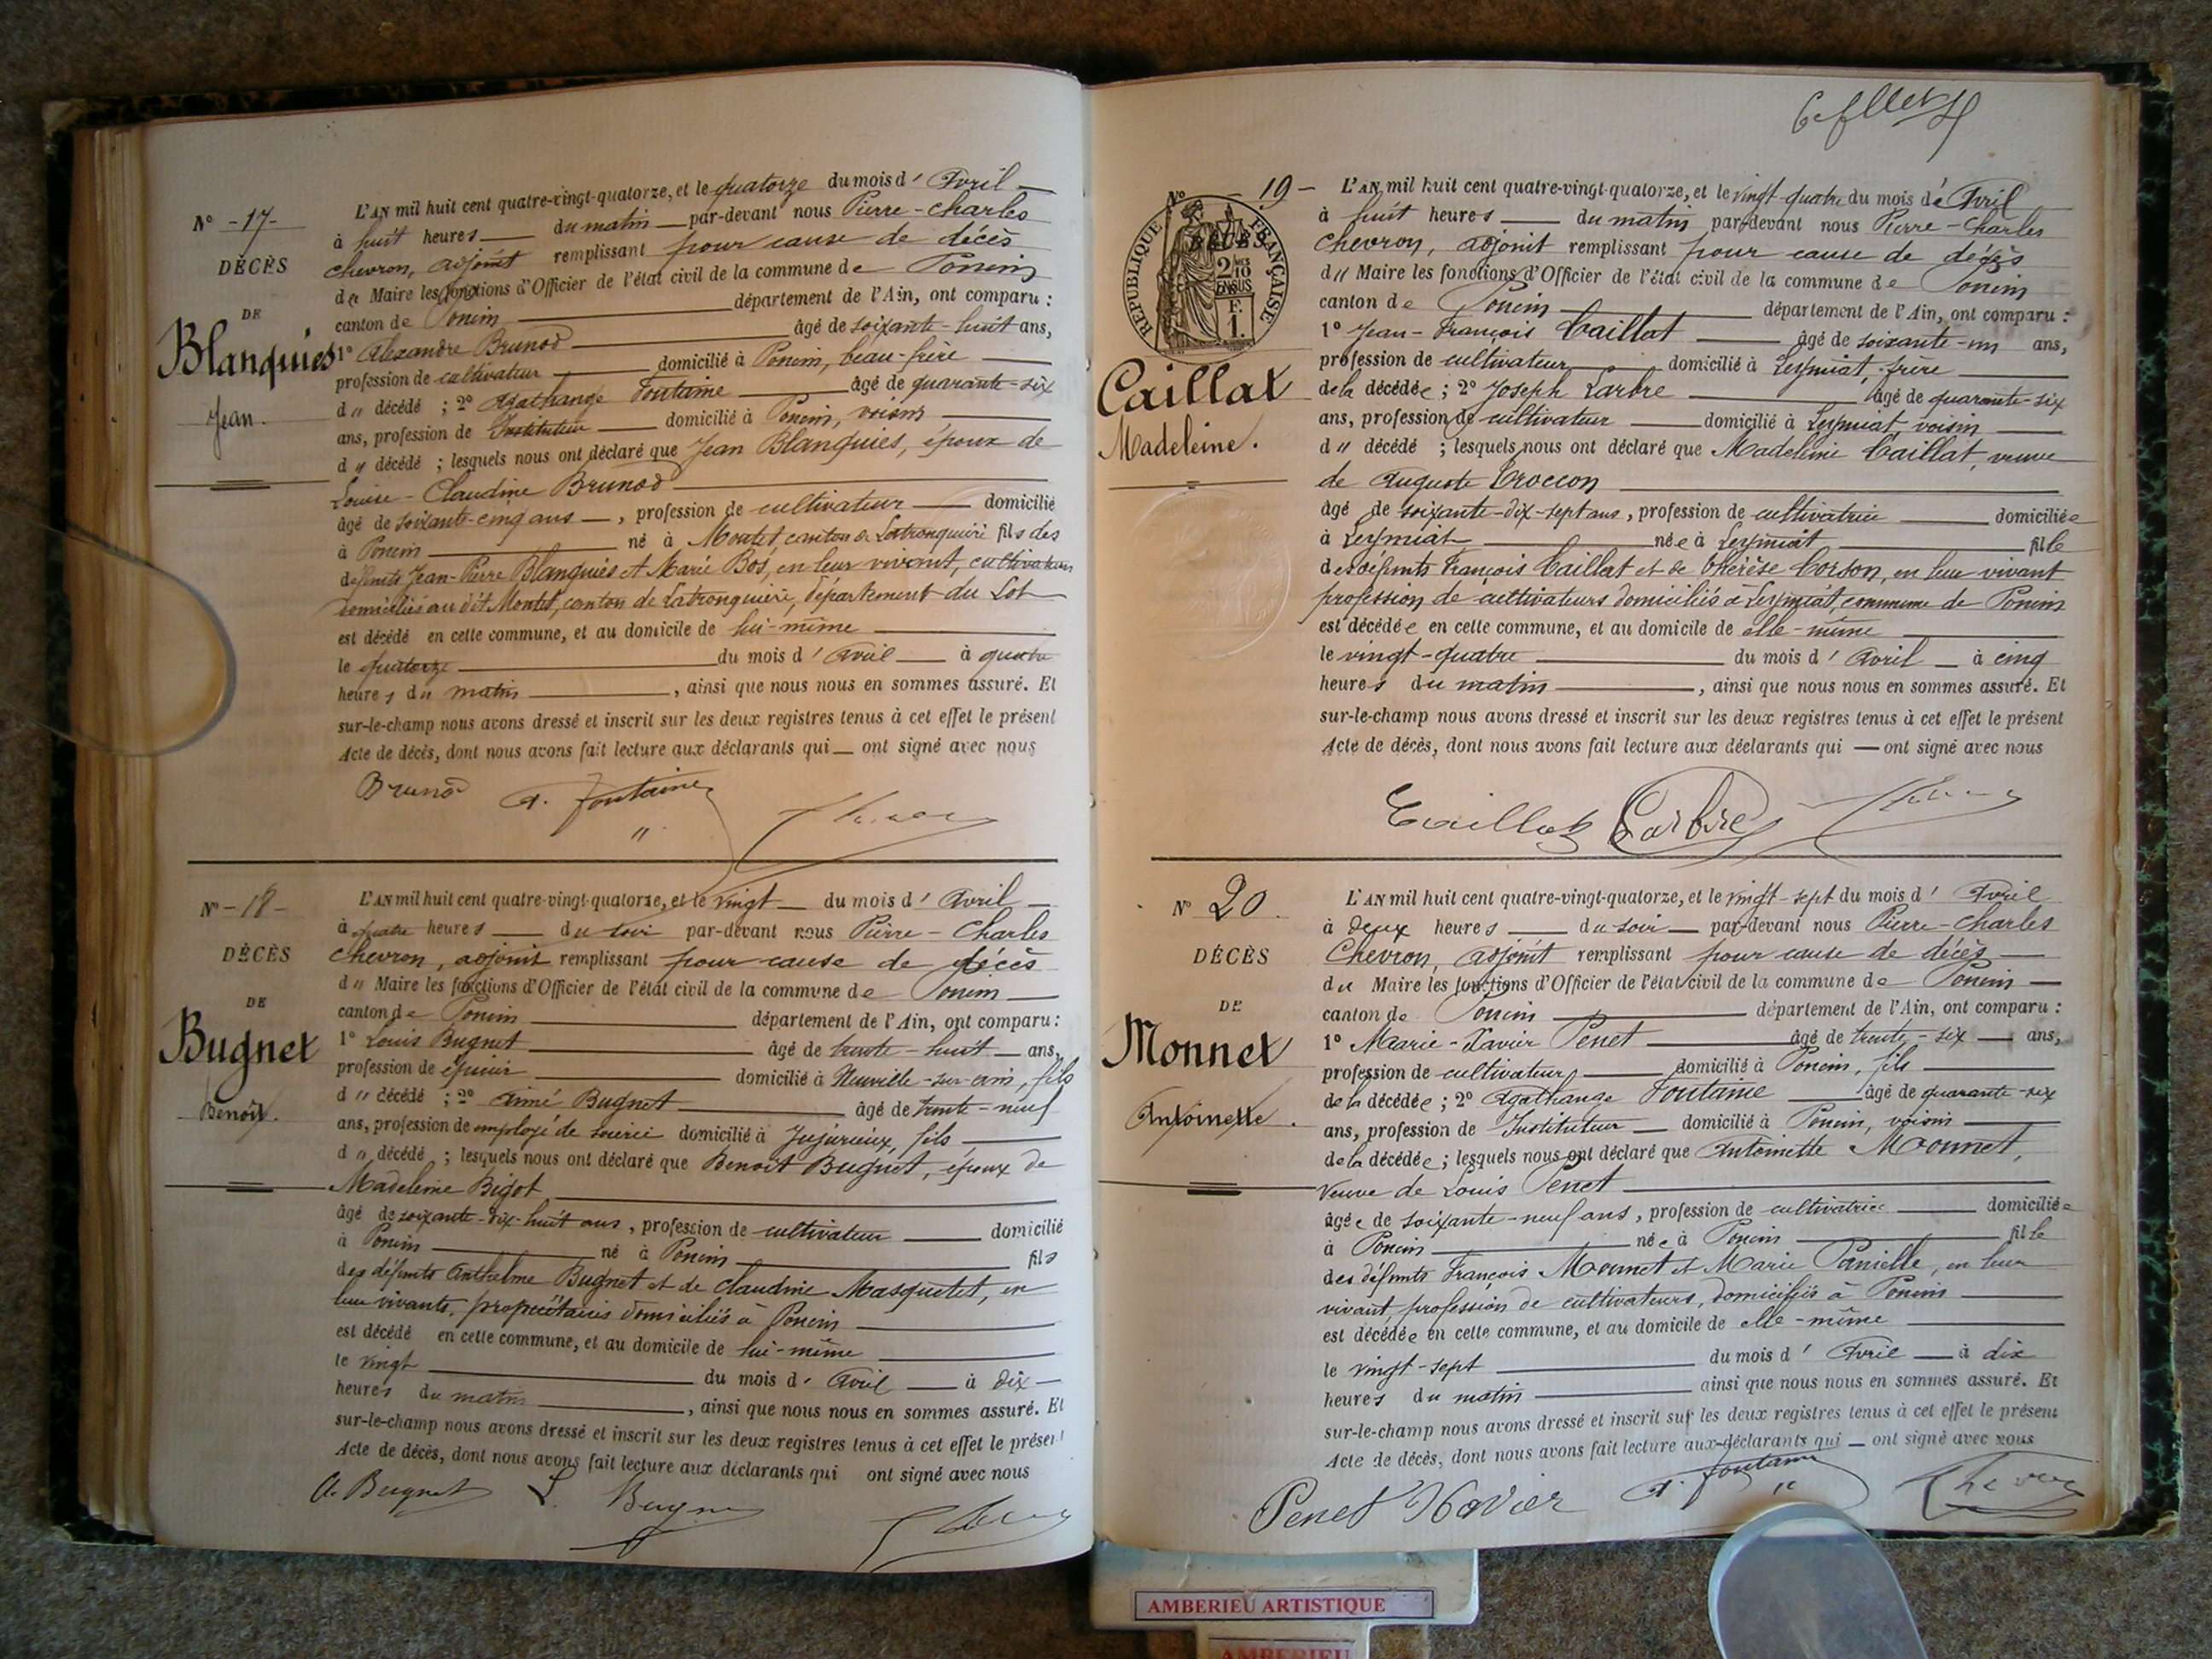 N° -17-
DÉCÈS
DE
Blanquies
Jean.
L'AN mil huit cent quatre-vingt-quatorze, et le quatorze du mois d' Avril
à huit heures du matin par-devant nous Pierre-Charles
Chevron, adjoint remplissant pour cause de décès
du Maire les fonctions d'Officier de l'état civil de la commune de Poncin
canton de Poncin département de l'Ain, ont comparu :
1° Alexandre Brunod âgé de soixante-huit ans,
profession de cultivateur domicilié à Poncin, beau-frère
d" décédé ; 2° Agathange Fontaine âgé de quarante-six
ans, profession de Instituteur domicilié à Poncin, voisins
d" décédé ; lesquels nous ont déclaré que Jean Blanquies, époux de
Louise-Claudine Brunod
âgé de soixante-cinq ans, profession de cultivateur domicilié
à Poncin né à Montet canton de Latronquière fils des
défunts Jean-Pierre Blanquies et Marie Bos, en leur vivant, cultivateurs
domiciliés au dit Montet, canton de Latronquière, département du Lot
est décédé en cette commune, et au domicile de lui-même
le quatorze du mois d' Avril à quatre
heures du matin, ainsi que nous nous en sommes assuré. Et
sur-le-champ nous avons dressé et inscrit sur les deux registres tenus à cet effet le présent
Acte de décès, dont nous avons fait lecture aux déclarants qui ont signé avec nous
Brunod A. Fontaine
N° -18-
DÉCÈS
DE
Bugnet
Benoît.
L'AN mil huit cent quatre-vingt-quatorze, et le vingt du mois d' Avril
à quatre heures du soir par-devant nous Pierre-Charles
Chevron, adjoint remplissant pour cause de décès
d" Maire les fonctions d'Officier de l'état civil de la commune de Poncin
canton de Poncin département de l'Ain, ont comparu :
1° Louis Bugnet âgé de trente-huit ans,
profession de épicier domicilié à Neuville-sur-ain, fils
d" décédé ; 2° Aimé Bugnet âgé de trente-neuf
ans, profession de employé de soierie domicilié à Jujurieux, fils
d" décédé ; lesquels nous ont déclaré que Benoît Bugnet, époux de
Madeleine Bigot
âgé de soixante-dix-huit ans, profession de cultivateur domicilié
à Poncin né à Poncin fils
des défunts Anthelme Bugnet et de Claudine Masquetet, en
leur vivants, propriétaires domiciliés à Poncin
est décédé en cette commune, et au domicile de lui-même
le vingt du mois d' Avril à dix
heures du matin, ainsi que nous nous en sommes assuré. Et
sur-le-champ nous avons dressé et inscrit sur les deux registres tenus à cet effet le présent
Acte de décès, dont nous avons fait lecture aux déclarants qui ont signé avec nous
A. Bugnet L. Bugnet
N° -19-
RÉPUBLIQUE FRANÇAISE
DÉCÈS
2/10 EN SUS
F. 1.
Caillat
Madeleine.
L'AN mil huit cent quatre-vingt-quatorze, et le vingt-quatre du mois d' Avril
à huit heures du matin par-devant nous Pierre-Charles
Chevron, adjoint remplissant pour cause de décès
d" Maire les fonctions d'Officier de l'état civil de la commune de Poncin
canton de Poncin département de l'Ain, ont comparu :
1° Jean-François Caillat âgé de soixante-un ans,
profession de cultivateur domicilié à Leymiat, frère
de la décédée ; 2° Joseph Larbre âgé de quarante-six
ans, profession de cultivateur domicilié à Leymiat, voisin
d" décédé ; lesquels nous ont déclaré que Madeleine Caillat, veuve
de Auguste Croccon
âgé de soixante-dix-sept ans, profession de cultivatrice domiciliée
à Leymiat née à Leymiat fille
des défunts François Caillat et de Thérèse Corson, en leur vivant
profession de cultivateurs domiciliés à Leymiat, commune de Poncin
est décédée en cette commune, et au domicile de elle-même
le vingt-quatre du mois d' Avril à cinq
heures du matin, ainsi que nous nous en sommes assuré. Et
sur-le-champ nous avons dressé et inscrit sur les deux registres tenus à cet effet le présent
Acte de décès, dont nous avons fait lecture aux déclarants qui ont signé avec nous
Caillat Larbre
N° 20
DÉCÈS
DE
Monnet
Antoinette.
L'AN mil huit cent quatre-vingt-quatorze, et le vingt-sept du mois d' Avril
à deux heures du soir par-devant nous Pierre-Charles
Chevron, adjoint remplissant pour cause de décès
du Maire les fonctions d'Officier de l'état civil de la commune de Poncin
canton de Poncin département de l'Ain, ont comparu :
1° Marie-Xavier Penet âgé de trente-six ans,
profession de cultivateur domicilié à Poncin, fils
de la décédée ; 2° Agathange Fontaine âgé de quarante-six
ans, profession de Instituteur domicilié à Poncin, voisin
de la décédée ; lesquels nous ont déclaré que Antoinette Monnet,
Veuve de Louis Penet
âgée de soixante-neuf ans, profession de cultivatrice domiciliée
à Poncin née à Poncin fille
des défunts François Monnet et Marie Panielle, en leur
vivant, profession de cultivateurs, domiciliés à Poncin
est décédée en cette commune, et au domicile de elle-même
le vingt-sept du mois d' Avril à dix
heures du matin ainsi que nous nous en sommes assuré. Et
sur-le-champ nous avons dressé et inscrit sur les deux registres tenus à cet effet le présent
Acte de décès, dont nous avons fait lecture aux déclarants qui ont signé avec nous
Penet Xavier A. Fontaine Chevron
AMBERIEU ARTISTIQUE
AMBERIEU